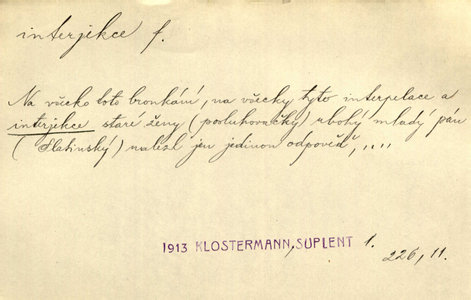 interjekce f.
Na všecko toto broukání, na všecky tyto interpelace a
interjekce staré ženy (posluhovačky) ubohý mladý pán
(Slatinský) nalezl jen jedinou odpověď, ....
1913 KLOSTERMANN, SUPLENT 1.
226, 11.